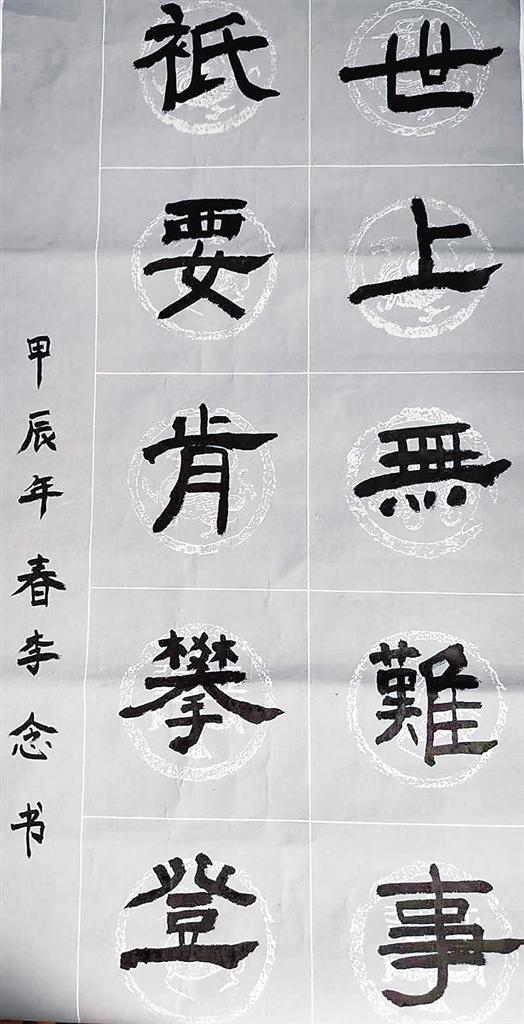 世上無難事
祇要肯攀登
甲辰年春李念书